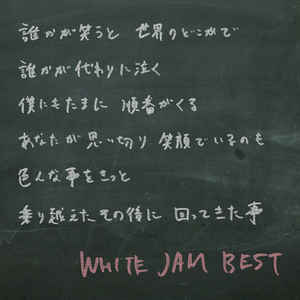 誰かが笑うと 世界のどこかで
誰かが代わりに泣く
僕にもたまに 順番がくる
あなたが思い切り 笑顔でいるのも
色んな事をきっと
乗り越えたその後に 回ってきた事
WHITE JAM BEST